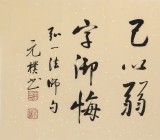 已以弱
字御悔
弘一法師句
元樸书